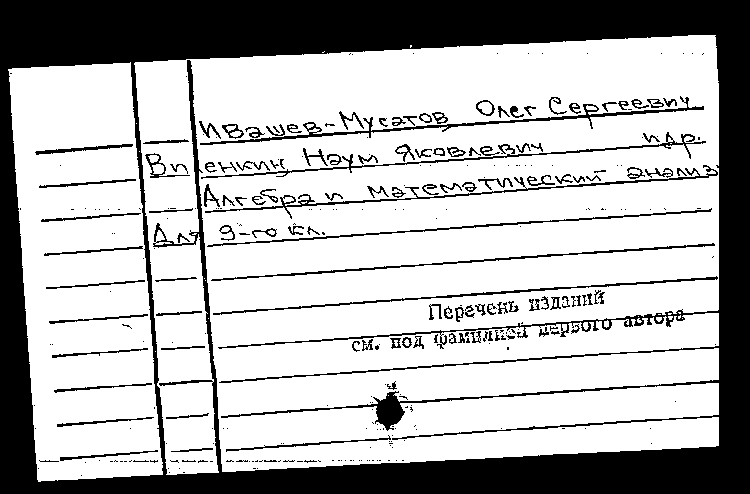 Ивашев-Мусатов Олег Сергеевич
Виленкин Наум Яковлевич и др.
Алгебра и математический анализ
Для 9-го кл.
Перечень изданий
см. под фамилией первого автора